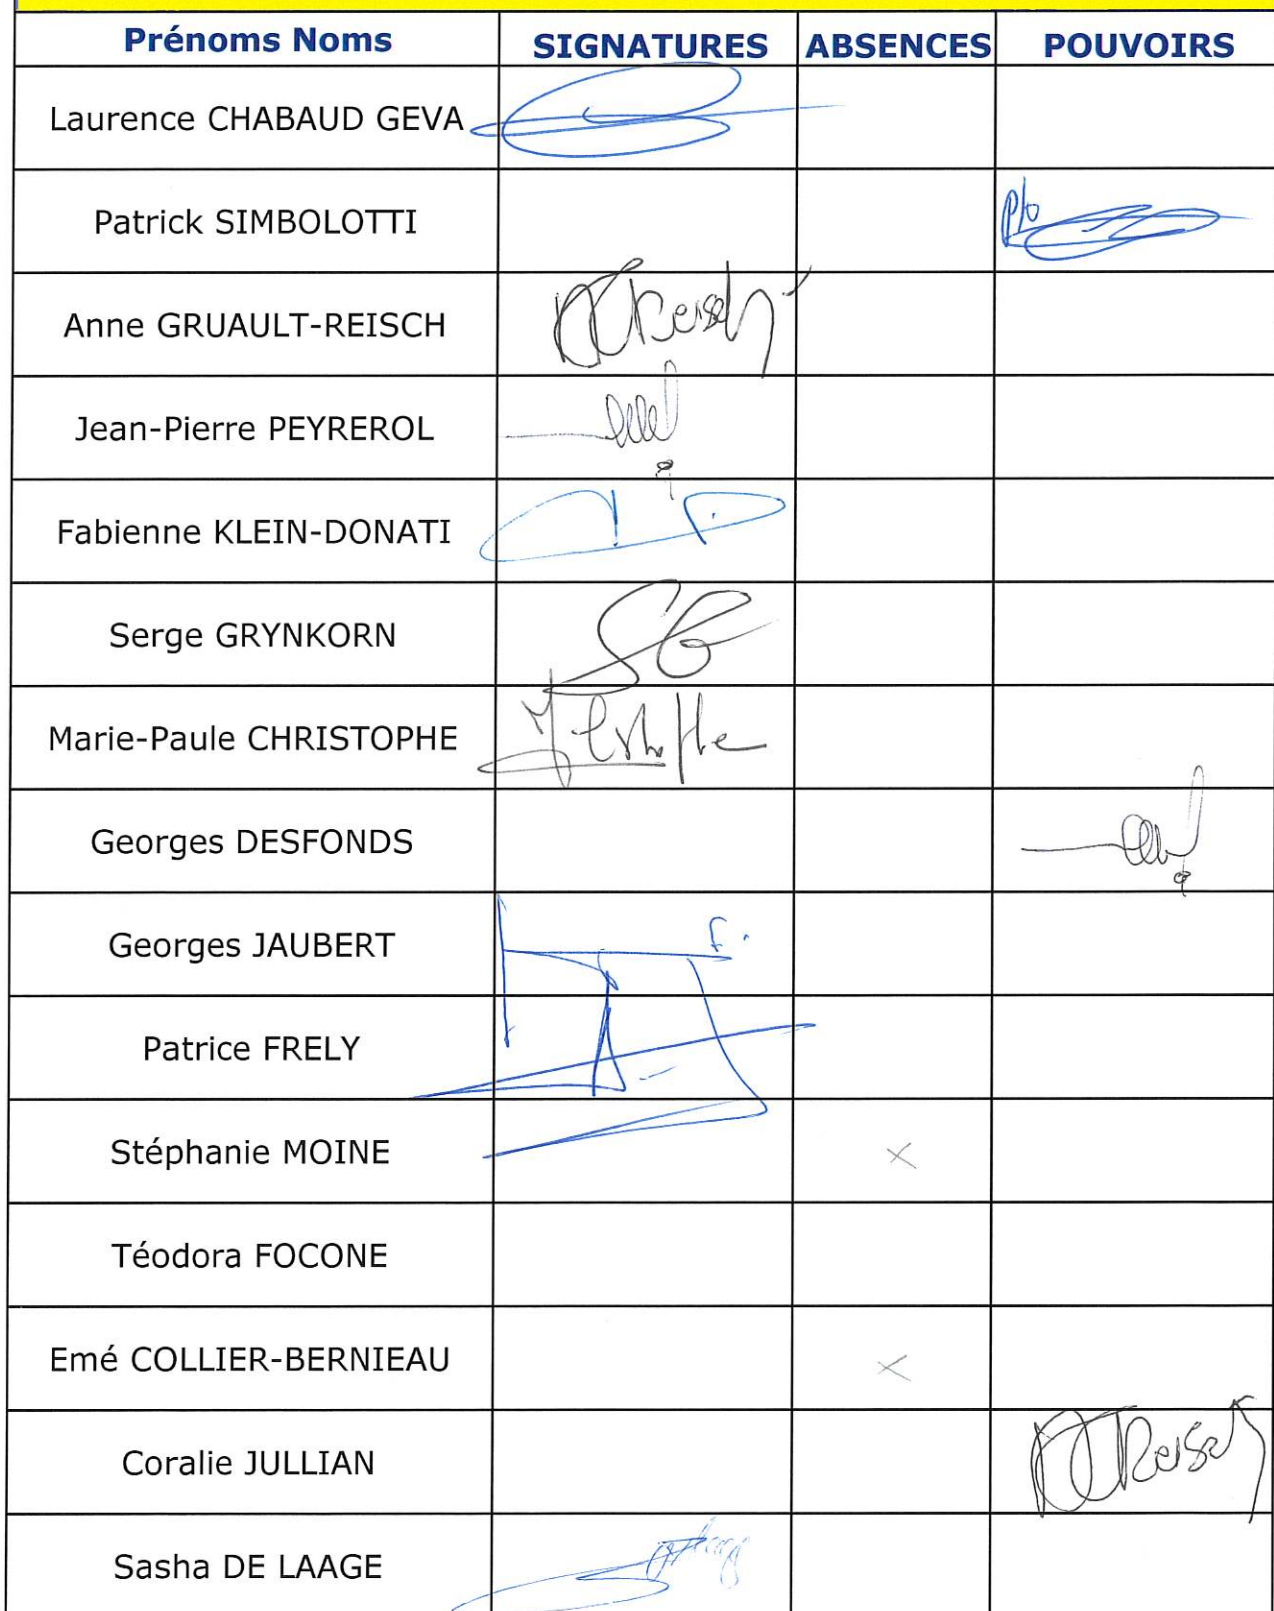 Prénoms Noms SIGNATURES ABSENCES POUVOIRS
Laurence CHABAUD GEVA
Patrick SIMBOLOTTI p/o
Anne GRUAULT-REISCH
Jean-Pierre PEYREROL
Fabienne KLEIN-DONATI
Serge GRYNKORN SG
Marie-Paule CHRISTOPHE
Georges DESFONDS
Georges JAUBERT
Patrice FRELY
Stéphanie MOINE X
Téodora FOCONE
Emé COLLIER-BERNIEAU X
Coralie JULLIAN
Sasha DE LAAGE